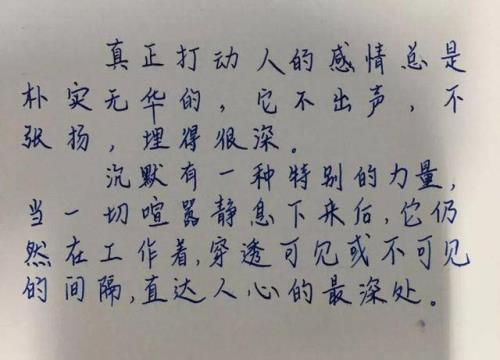 真正打动人的感情总是
朴实无华的，它不出声，不
张扬，埋得很深。
沉默有一种特别的力量，
当一切喧嚣静息下来后，它仍
然在工作着，穿透可见或不可见
的间隔，直达人心的最深处。